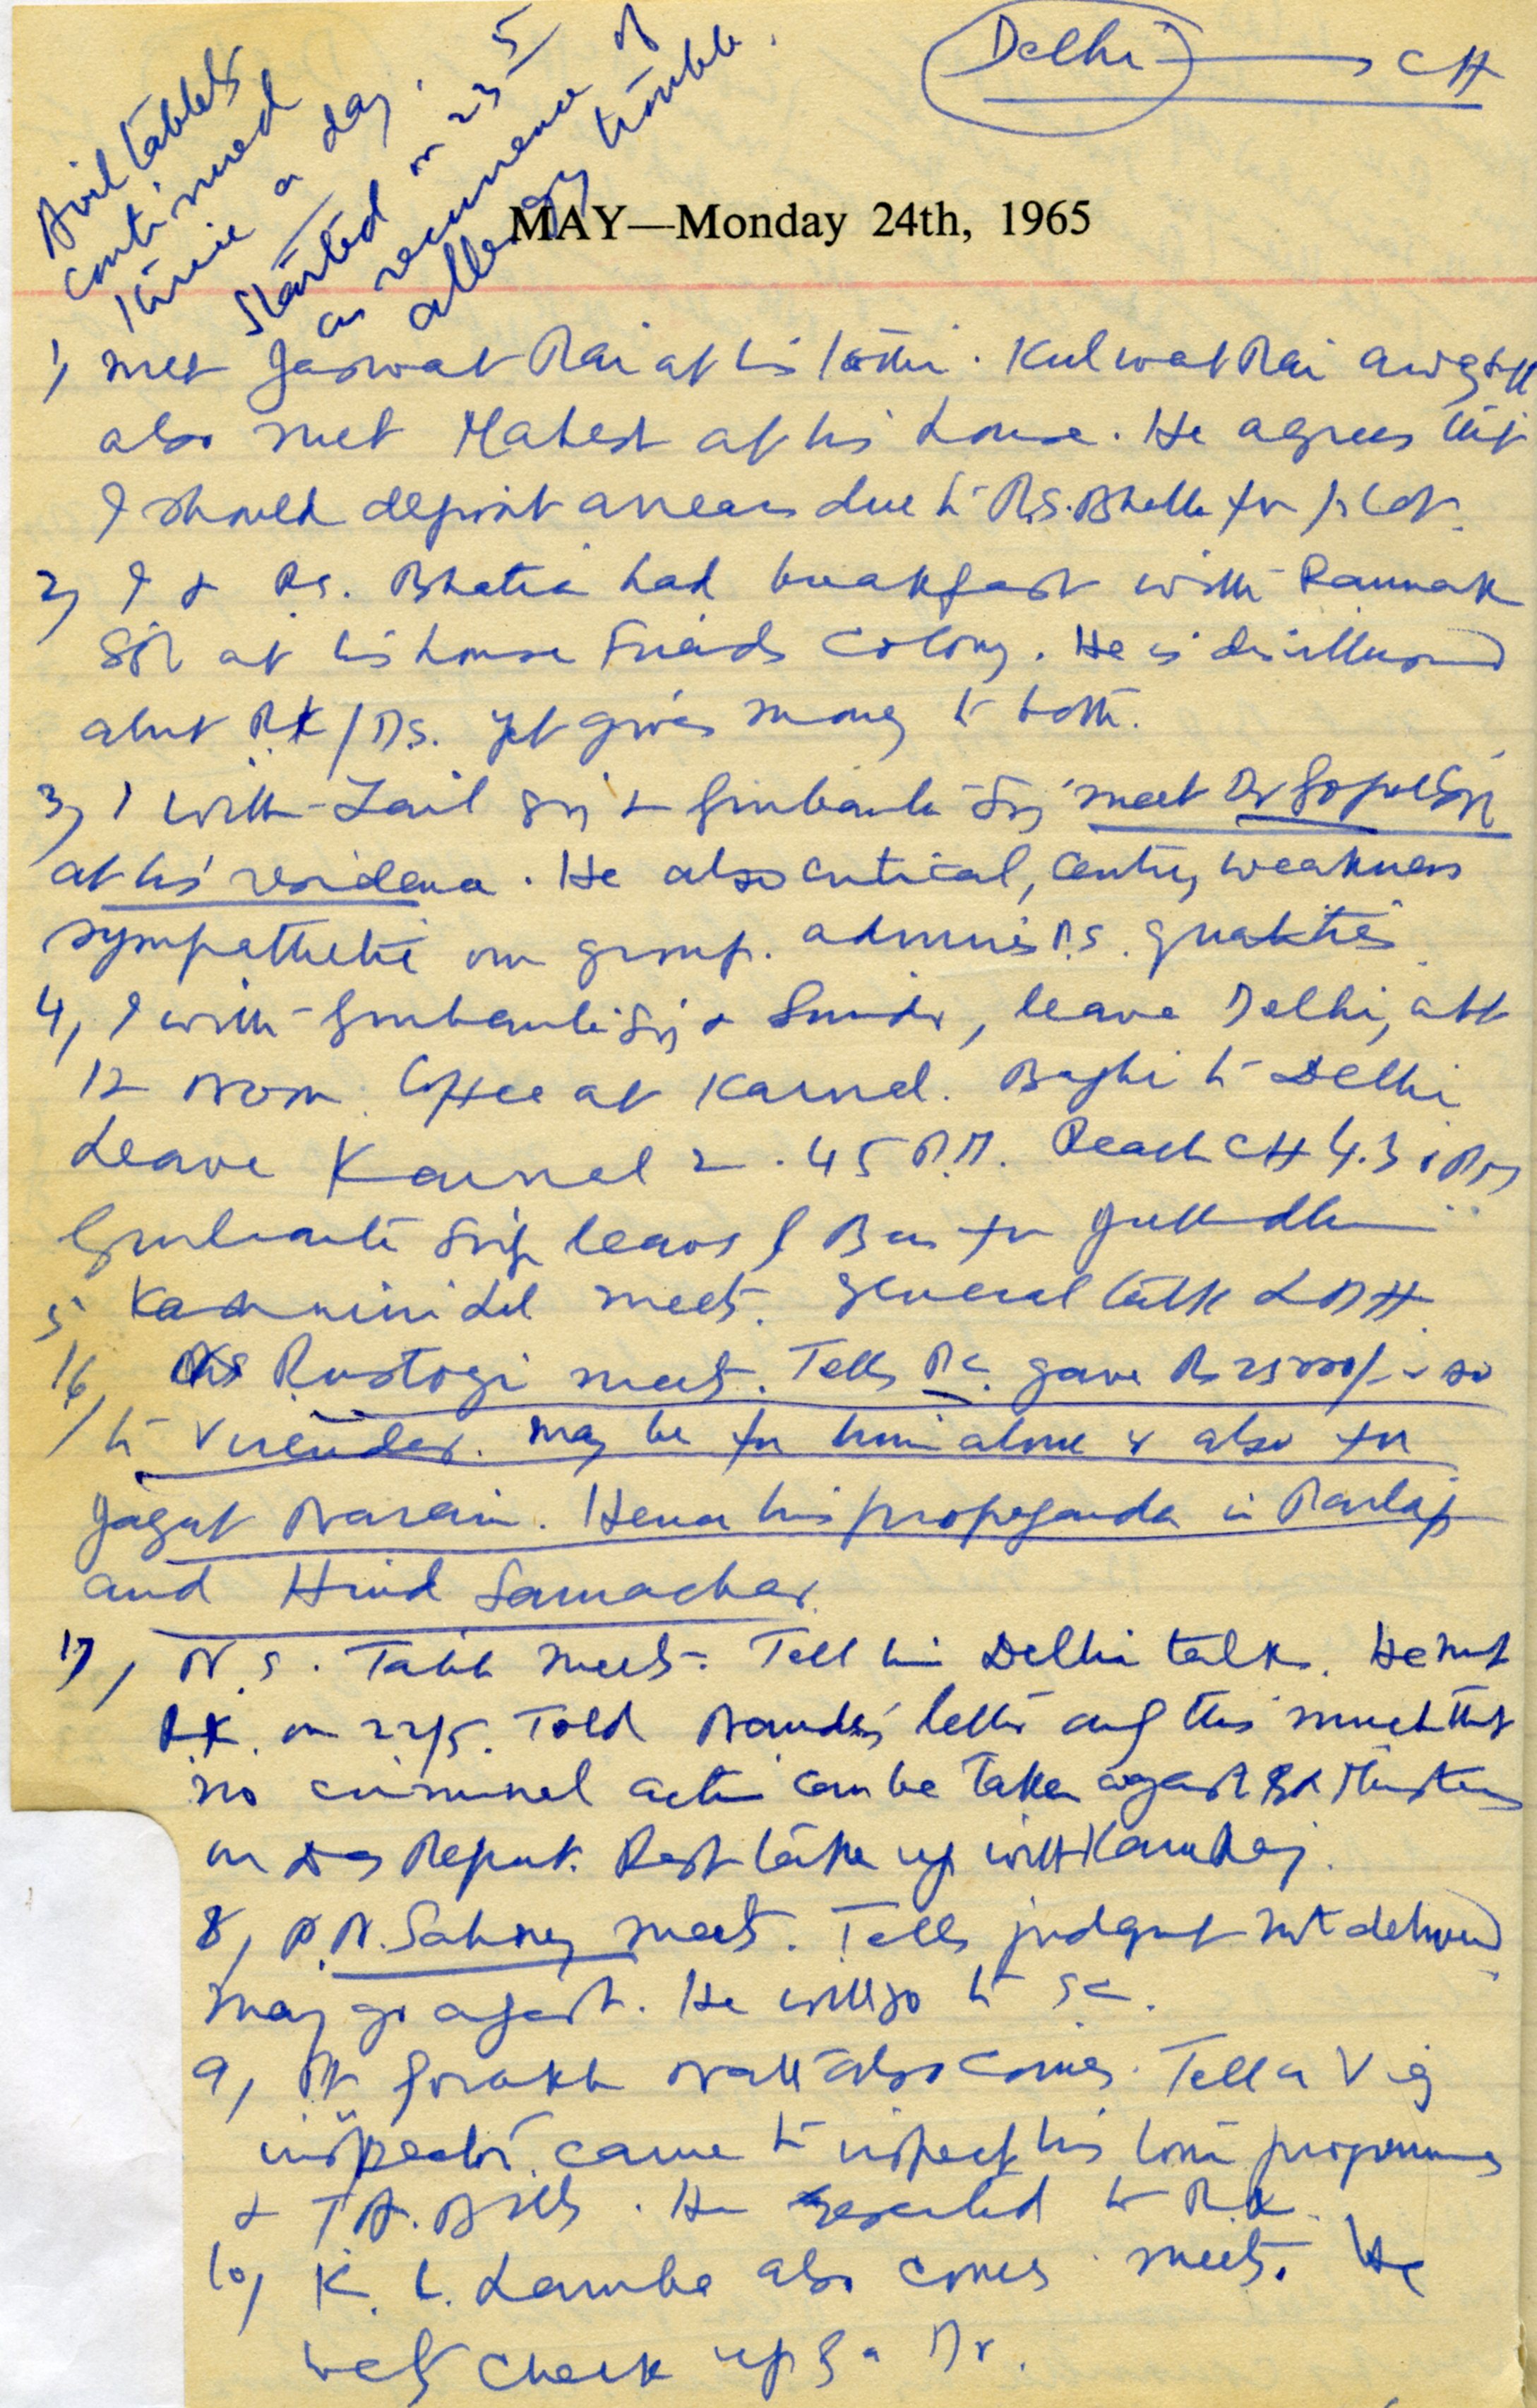 Delhi → CH
Avil tablets
continued
thrice a day.
Started on 23/5
as recurrence of
allergy trouble.
MAY—Monday 24th, 1965
1, Met Jaswat Rai at his Kothi. Kulwat Rai
also met Mahesh at his house. He agrees that
I should deposit arrears due to R.S. Bhalla for plot.
2, I & R.S. Bhatia had breakfast with Raunak
Sin at his house Friends Colony. He is disillusioned
about R.K/D.S. Yet gives money to both.
3, I with Zail Sinj & Gurbanta Sinj meet Dr Gopal Sinj
at his residence. He also critical, Centre, weakness
sympathetic our group. admires D.S. qualities.
4, I with Gurbanta Sinj & Surinder, leave Delhi, at
12 Noon. Coffee at Karnal. to Delhi
Leave Karnal 2.45 P.M. Reach CH 4.30 PM
Gurbanta Sinj leaves by Bus for Jullundhur
5, Lal meets. General talk LDH.
16, Rustogi meets. Tells gave Rs 25000/- or so
to Virender. may be for him alone & also for
Jagat Narain. Hence his propaganda in Partap
and Hind Samachar.
17, N.S. Talib meets. Tell him Delhi talk. He met
R.K. on 22/5. Told Nanda's letter only this much that
no criminal action can be taken against Ministers
on Das Report. Rest take up with Kamraj.
8, P.N. Sahney meets. Tells judgment not delivered
may go against. He will go to SC.
9, Gorakh Nath also comes. Tell a Vig
inspector came to inspect his tour programmes
& T.A. Bills. He resented to R.K.
10, K.L. Lamba also comes meets. He
wets check up by a Dr.